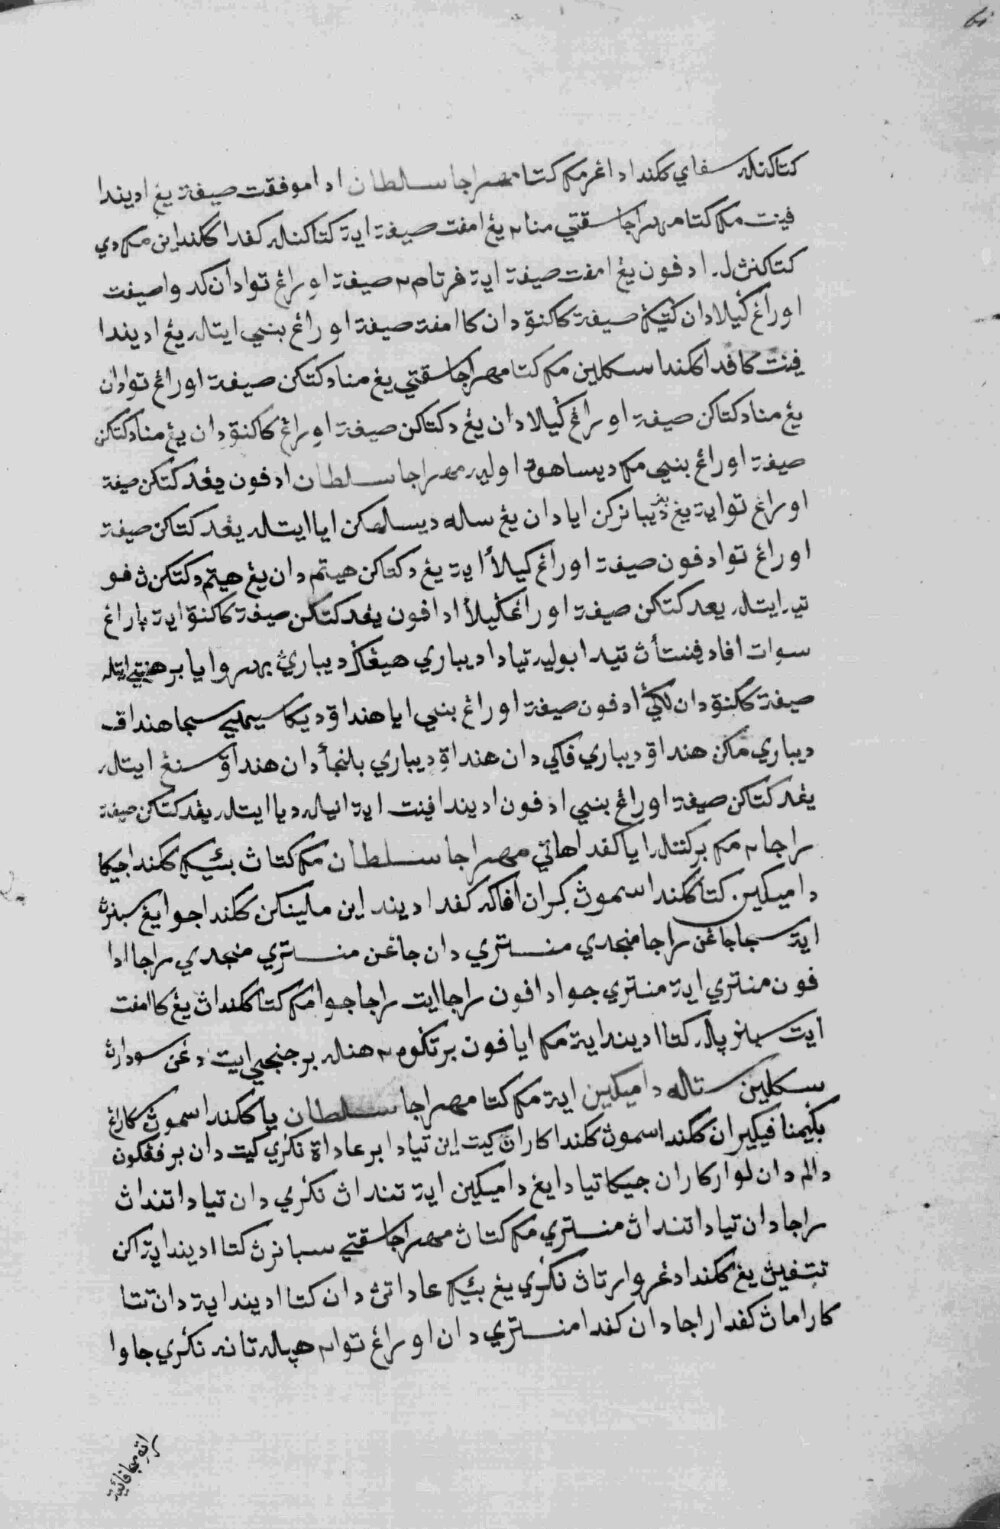 كتاكنله سفاي ككندا داغر مك كتا مهراج سلطان ادا موفقت صيفة يغ اديندا
فينت مك كتا مهراج سقتي منا٢ يغ امفت صيفة ايت كتاكنله كفدا ككندا اين مك دي
كتاكنڽ ل. ادفون يغ امفت صيفة ايت فرتام٢ صيفة اورڠ توا دان كدوا صيفت
اورڠ ڬيلا دان كتيڬ صيفة كاكنق دان كاامفة صيفة اورڠ بنيي ايتله يغ اديندا
فينت كافدا ككندا سكلين مك كتا مهراج سقتي يغ منا دكتاكن صيفة اورڠ توا دان
يغ منا دكتاكن صيفة اورڠ ڬيلا دان يغ دكتاكن صيفة اورڠ كاكنق دان يغ منا دكتاكن
صيفة اورڠ بنيي مك ديساهوت اوليه مهراج سلطان ادفون يغ دكتاكن صيفة
اورڠ توا ايت يغ بنر ديبانركن ايا دان يغ ساله ديسلهكن ايا ايتله يغ دكتاكن صيفة
اورڠ توا ادفون صيفة اورڠ ڬيلا ايت يغ دكتاكن هيتم دان يغ هيتم دكتاكنڽ فو
تيه ايتله يغ دكتاكن صيفة اورڠ ڬيلا ادافون يغ دكتاكن صيفة كاكنق ايت بارڠ
سوات افا دفنتاڽ تيدا بوليه تيادا ديباري هيڠڬ ديباري بهروا ايا برهنتي ايتله
صيفة كاكنق دان لاڬي ادفون صيفة اورڠ بنيي ايا هندق ديكاسيهي سهاج هندق
ديباري مكن هندق ديباري فاكي دان هندق ديباري بلنجا دان هندق سنڠ ايتله
يغ دكتاكن صيفة اورڠ بنيي ادفون اديندا فينت ايت اياله ديا ايتله يغ دكتاكن صيفة
راج٢ مك بركتاله ايا كفدا هاتي مهراج سلطان مك كتاڽ بئيكله ككندا جيكا
دامكين كتا ككندا سموڽ بكران افاكه كفدا اديندا اين ملينكن ككندا جوا يغ سبنرڽ
ايت سهاج جاغن راجا منجدي منتري دان جاغن منتري منجدي راجا ادا
فون منتري ايت منتري جوا ادافون راجا ايت راجا جوا مك كتا ككنداڽ يغ كاامفت
ايت سبنرڽله كتا اديندا ايت مك ايافون برتڬوه٢نله برجنجي ايت دغن سوداراڽ
سكلين ستله دامكين ايت مك كتا مهراج سلطان يا ككندا سموڽ كارڠ
بڬيمنا فيكيران ككندا سموڽ ككندا كارن كيت اين تيادا برعادة نڬري كيت دان برفڠكون
دالم دان لوار كارن جيكا تيادا يغ دامكين ايت تنداڽ نڬري دان تيادا تنداڽ
راجا دان تيادا تنداڽ منتري مك كتاڽ مهراج سقتي سبنرڽ كتا اديندا ايت اكن
تتفي يغ ككندا دغر وارتاڽ نڬري يغ بئيك عادتڽ دان كتا اديندا ايت دان تتا
كراماڽ كفدا راجا دان كفدا منتري دان اورڠ توا٢ هياله تانه نڬري جاوا